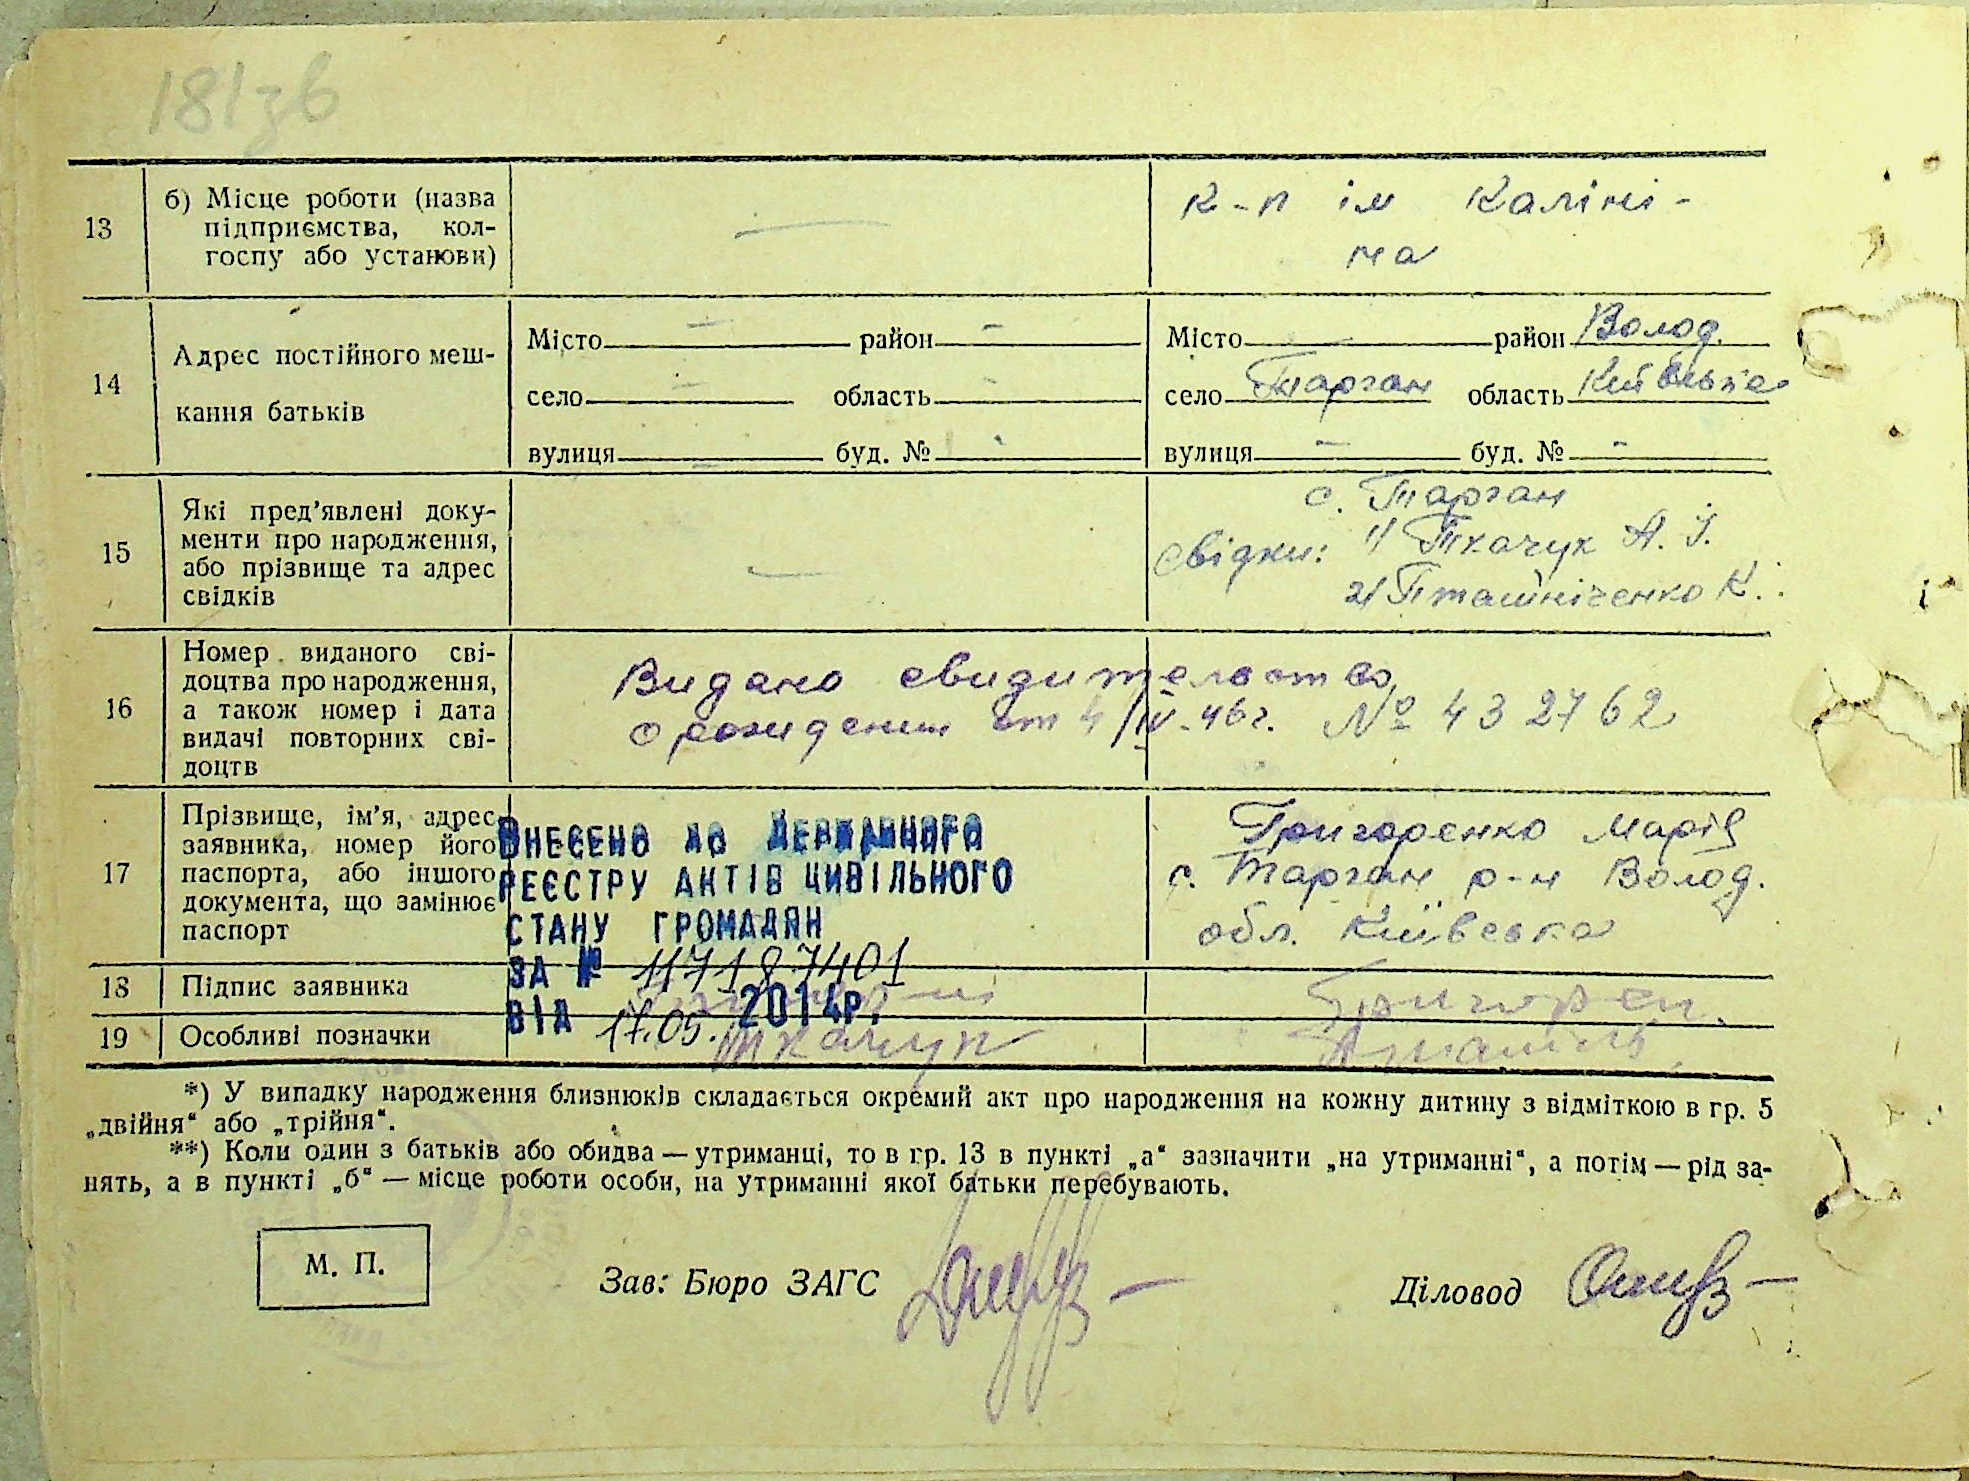 181зв
13
б) Місце роботи (назва
підприємства, кол-
госпу або установи)
—
к-п ім Каліні-
на
14
Адрес постійного меш-
кання батьків
Місто — район —
село — область —
вулиця — буд. № -
Місто район Волод.
село Тарган область Київська
вулиця — буд. № -
15
Які пред'явлені доку-
менти про народження,
або прізвище та адрес
свідків
—
с. Тарган
свідки: 1/ Ткачук А. І.
2/ Пташніченко К.
16
Номер виданого сві-
доцтва про народження,
а також номер і дата
видачі повторних сві-
доцтв
Видано свидительство
о рождении от 4/IV-46г. № 432762
17
Прізвище, ім'я, адрес
заявника, номер його
паспорта, або іншого
документа, що замінює
паспорт
ВНЕСЕНО ДО ДЕРЖАВНОГО
РЕЄСТРУ АКТІВ ЦИВІЛЬНОГО
СТАНУ ГРОМАДЯН
ЗА № 117187401
ВІД 17.05. 2014р.
Григоренко Марія
с. Тарган р-н Волод.
обл. Київська
18
Підпис заявника
Григорен.
19
Особливі позначки
Ткачук
*) У випадку народження близнюків складається окремий акт про народження на кожну дитину з відміткою в гр. 5
„двійня“ або „трійня“.
**) Коли один з батьків або обидва — утриманці, то в гр. 13 в пункті „а“ зазначити „на утриманні“, а потім — рід за-
нять, а в пункті „б“ — місце роботи особи, на утриманні якої батьки перебувають.
М. П.
Зав: Бюро ЗАГС
Діловод